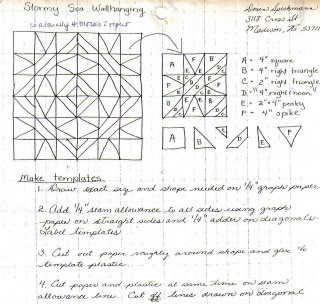 Stormy Sea Wallhanging
is already 4 blocks & repeat
3118 Cross St
Madison, WI 53711
A = 4" square
B = 4" right triangle
C = 2" right triangle
D = "4" right
E = 2"x4"
F = 4" spike
A
B
C
D
E
F
Make templates
1. Draw exact size and shape needed on 1/4" graph paper
2. Add 1/4" seam allowance to all sides using graph
paper on straight sides and 1/4" adder on diagonals.
Label templates
3. Cut out paper roughly around shape and glue to
template plastic.
4. Cut paper and plastic at same time on seam
allowance line. Cut lines drawn on diagonal